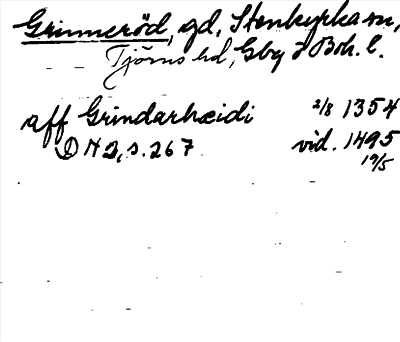 Grinneröd, gd, Stenkyrka sn,
Tjörns hd, Gbg o Boh. l.
aff Grindarhæidi 2/8 1354
DN 2, s. 267 vid. 1495
19/5